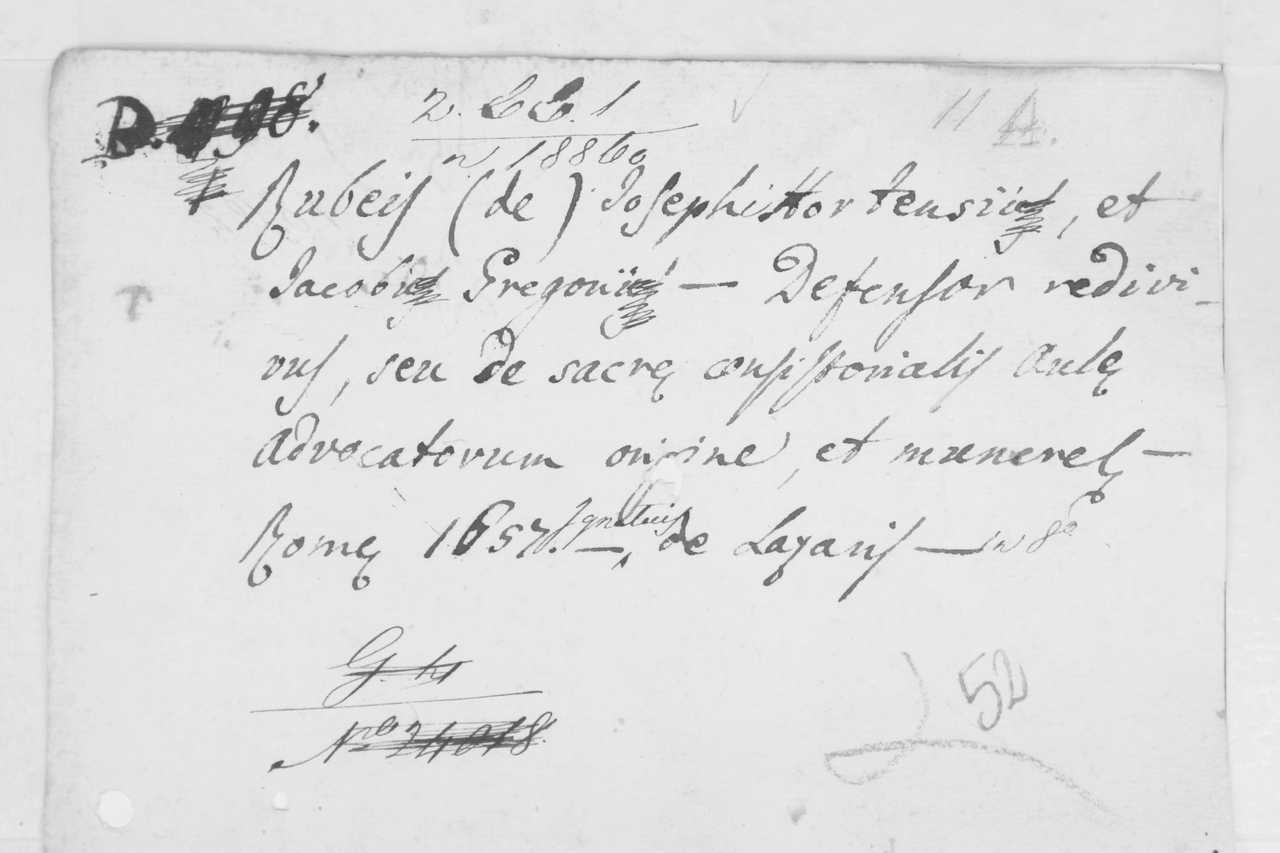 2. L L. 1
11 A.
n 18860
Rubeis (de) Josephi Hortensii, et
Jacobi Gregorii — Defensor redivi-
vus, seu de sacrę consistorialis Aulę
Advocatorum origine, et munere —
Romę 1657. Ignatius de Lazaris — in 8º
G. h
Nro 24018
52